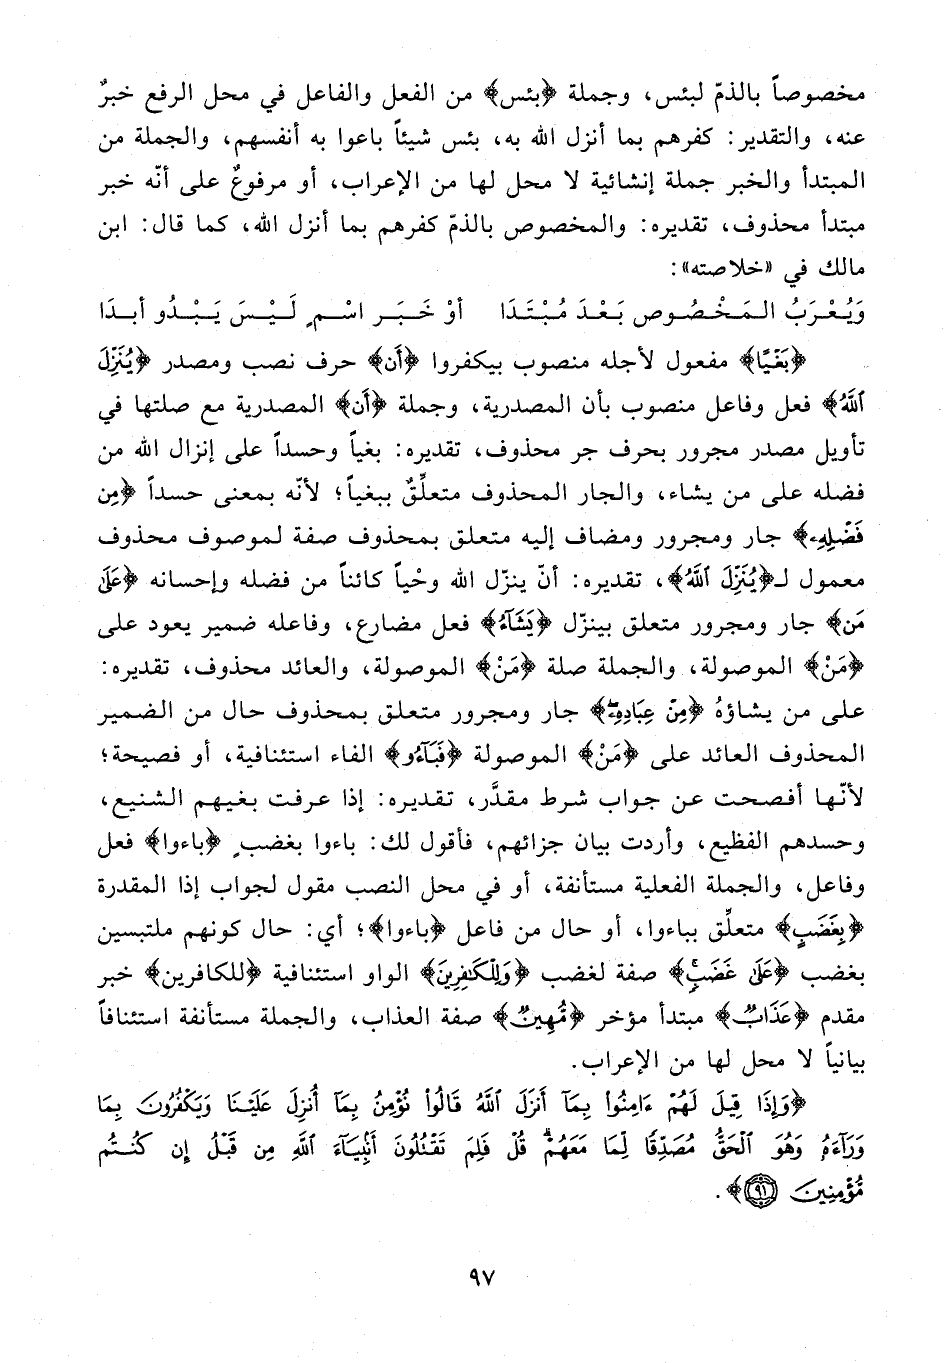 مخصوصاً بالذمّ لبئس، وجملة ﴿بئس﴾ من الفعل والفاعل في محل الرفع خبرٌ
عنه، والتقدير: كفرهم بما أنزل الله به، بئس شيئاً باعوا به أنفسهم، والجملة من
المبتدأ والخبر جملة إنشائية لا محل لها من الإعراب، أو مرفوعٌ على أنّه خبر
مبتدأ محذوف، تقديره: والمخصوص بالذمّ كفرهم بما أنزل الله، كما قال: ابن
مالك في «خلاصته»:
وَيُعْرَبُ الـمَـخْـصُـوص بَـعْـدَ مُـبْـتَـدَا أوْ خَـبَـر اسْـمٍ لَـيْـسَ يَـبْـدُو أبـدَا
﴿بَغْيًا﴾ مفعول لأجله منصوب بيكفروا ﴿أن﴾ حرف نصب ومصدر ﴿يُنَزِّلَ
ٱللَّهُ﴾ فعل وفاعل منصوب بأن المصدرية، وجملة ﴿أن﴾ المصدرية مع صلتها في
تأويل مصدر مجرور بحرف جر محذوف، تقديره: بغياً وحسداً على إنزال الله من
فضله على من يشاء، والجار المحذوف متعلِّقٌ ببغياً؛ لأنّه بمعنى حسداً ﴿مِن
فَضْلِهِۦ﴾ جار ومجرور ومضاف إليه متعلق بمحذوف صفة لموصوف محذوف
معمول لـ﴿يُنَزِّلَ ٱللَّهُ﴾، تقديره: أنّ ينزّل الله وحْياً كائناً من فضله وإحسانه ﴿عَلَىٰ
مَن﴾ جار ومجرور متعلق بينزّل ﴿يَشَآءُ﴾ فعل مضارع، وفاعله ضمير يعود على
﴿مَنْ﴾ الموصولة، والجملة صلة ﴿مَنْ﴾ الموصولة، والعائد محذوف، تقديره:
على من يشاؤهُ ﴿مِنْ عِبَادِهِۦ﴾ جار ومجرور متعلق بمحذوف حال من الضمير
المحذوف العائد على ﴿مَنْ﴾ الموصولة ﴿فَبَآءُو﴾ الفاء استئنافية، أو فصيحة؛
لأنّها أفصحت عن جواب شرط مقدَّر، تقديره: إذا عرفت بغيهم الشنيع،
وحسدهم الفظيع، وأردت بيان جزائهم، فأقول لك: باءوا بغضبٍ ﴿باءوا﴾ فعل
وفاعل، والجملة الفعلية مستأنفة، أو في محل النصب مقول لجواب إذا المقدرة
﴿بِغَضَبٍ﴾ متعلِّق بباءوا، أو حال من فاعل ﴿باءوا﴾؛ أي: حال كونهم ملتبسين
بغضب ﴿عَلَىٰ غَضَبٍ﴾ صفة لغضب ﴿وَلِلْكَٰفِرِينَ﴾ الواو استئنافية ﴿للكافرين﴾ خبر
مقدم ﴿عَذَابٌ﴾ مبتدأ مؤخر ﴿مُّهِينٌ﴾ صفة العذاب، والجملة مستأنفة استئنافاً
بيانياً لا محل لها من الإعراب.
﴿وَإِذَا قِيلَ لَهُمْ ءَامِنُوا۟ بِمَآ أَنزَلَ ٱللَّهُ قَالُوا۟ نُؤْمِنُ بِمَآ أُنزِلَ عَلَيْنَا وَيَكْفُرُونَ بِمَا
وَرَآءَهُۥ وَهُوَ ٱلْحَقُّ مُصَدِّقًا لِّمَا مَعَهُمْ ۗ قُلْ فَلِمَ تَقْتُلُونَ أَنۢبِيَآءَ ٱللَّهِ مِن قَبْلُ إِن كُنتُم
مُّؤْمِنِينَ ٩١﴾.
٩٧